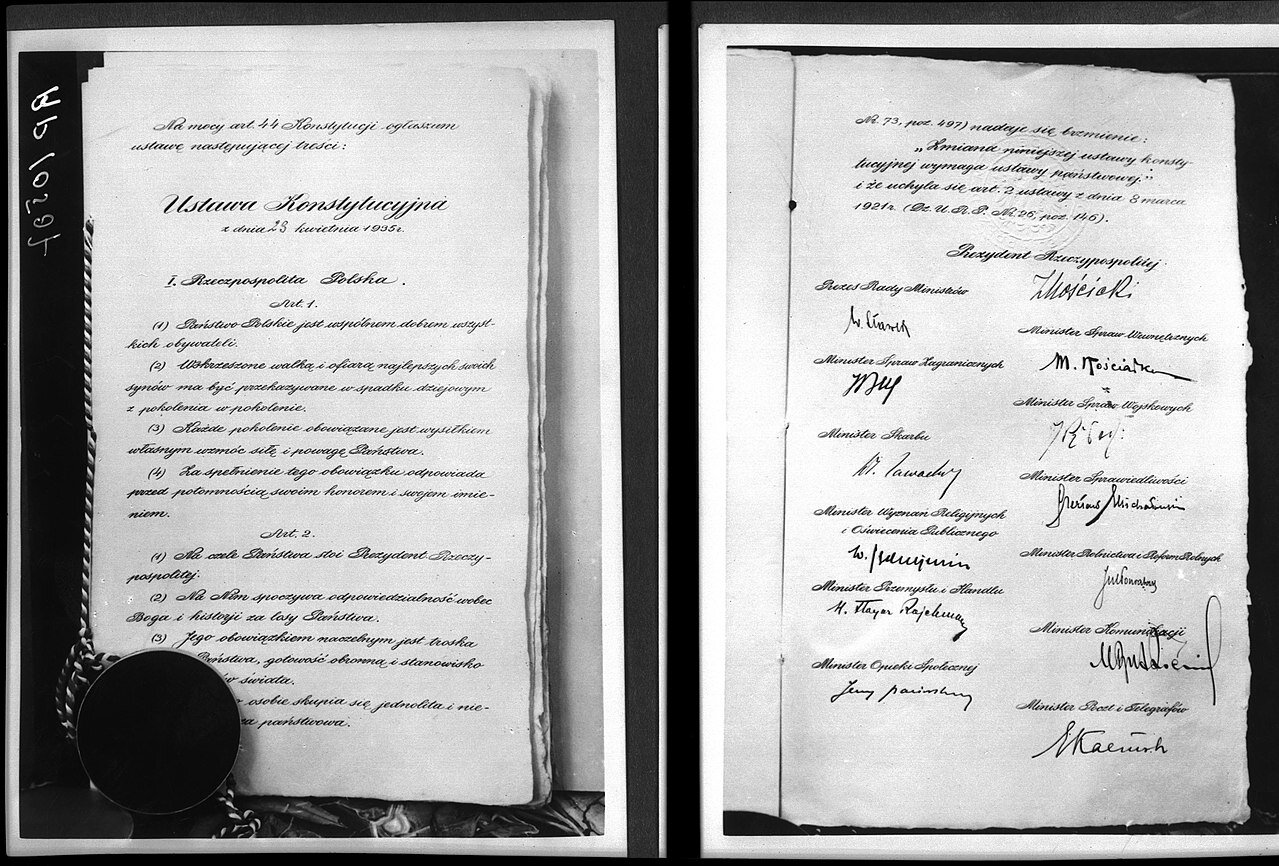 Na mocy art. 44 Konstytucji ogłaszam
ustawę następującej treści:
Ustawa Konstytucyjna
z dnia 23 kwietnia 1935 r.
I. Rzeczpospolita Polska.
Art. 1.
(1) Państwo Polskie jest wspólnem dobrem wszyst-
kich obywateli.
(2) Wskrzeszone walką i ofiarą najlepszych swoich
synów ma być przekazywane w spadku dziejowym
z pokolenia w pokolenie.
(3) Każde pokolenie obowiązane jest wysiłkiem
własnym wzmóc siłę i powagę Państwa.
(4) Za spełnienie tego obowiązku odpowiada
przed potomnością swoim honorem i swojem imie-
niem.
Art. 2.
(1) Na czele Państwa stoi Prezydent Rzeczy-
pospolitej.
(2) Na Nim spoczywa odpowiedzialność wobec
Boga i historji za losy Państwa.
(3) Jego obowiązkiem naczelnym jest troska
Państwa, gotowość obronną i stanowisko
świata.
osobie skupia się jednolita i nie-
państwowa.
Nr. 73, poz. 497) nadaje się brzmienie:
„Zmiana niniejszej ustawy konsty-
tucyjnej wymaga ustawy państwowej."
i że uchyla się art. 2 ustawy z dnia 8 marca
1921 r. (Dz. U. R. P. Nr. 26, poz. 146).
Prezydent Rzeczypospolitej
IMościcki
Prezes Rady Ministrów
W. Sławek
Minister Spraw Wewnętrznych
M. Kościałkowski
Minister Spraw Zagranicznych
Minister Spraw Wojskowych
Minister Skarbu
Wł. Zawadzki
Minister Sprawiedliwości
Czesław Michałowski
Minister Wyznań Religijnych
i Oświecenia Publicznego
W. Jędrzejewicz
Minister Rolnictwa i Reform Rolnych
Minister Przemysłu i Handlu
H. Floyar Rajchman
Minister Komunikacji
Minister Opieki Społecznej
Jerzy Paciorkowski
Minister Poczt i Telegrafów
EKaliński